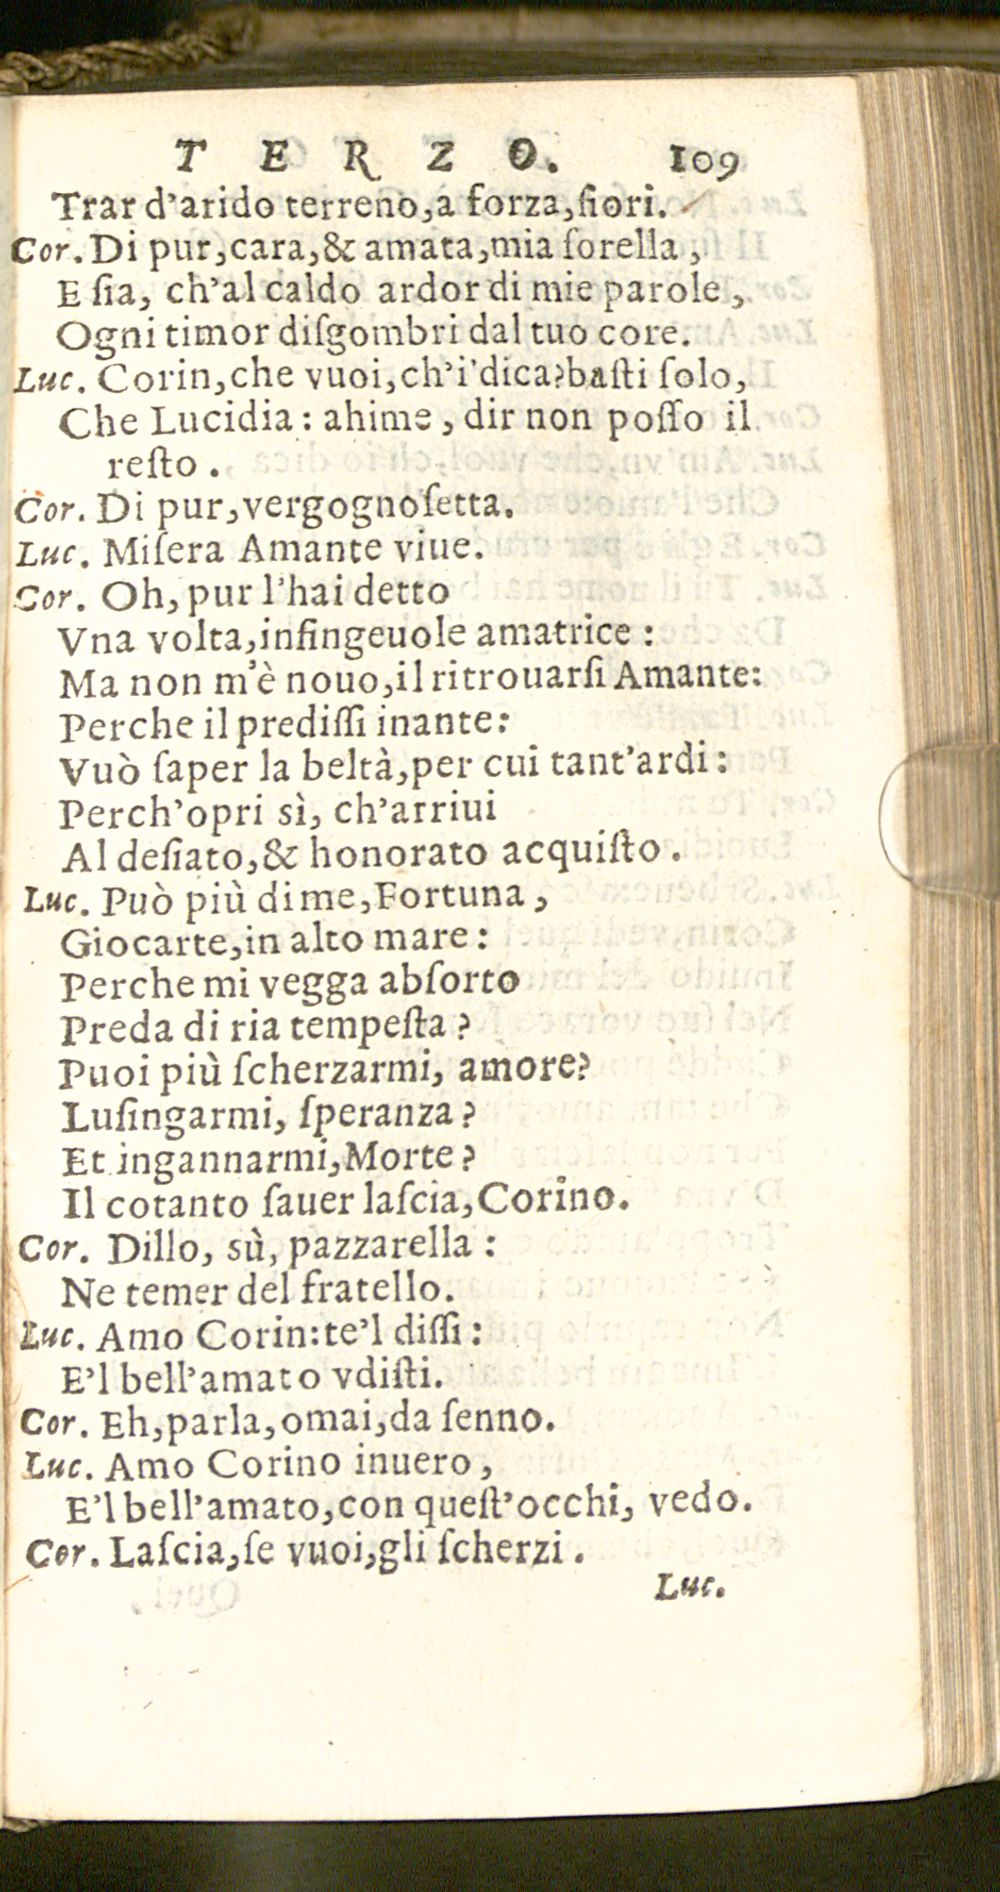 TERZO. 109
Trar d'arido terreno,a forza,fiori.
Cor. Di pur,cara,& amata,mia ſorella,
E ſia, ch'al caldo ardor di mie parole,
Ogni timor diſgombri dal tuo core.
Luc. Corin,che vuoi,ch'i'dica?baſti ſolo,
Che Lucidia: ahime, dir non poſſo il
reſto.
Cor. Di pur,vergognoſetta.
Luc. Miſera Amante viue.
Cor. Oh, pur l'hai detto
Vna volta,infingeuole amatrice:
Ma non m'è nouo,il ritrouarſi Amante:
Perche il prediſſi inante:
Vuò ſaper la beltà,per cui tant'ardi:
Perch'opri sì, ch'arriui
Al deſiato,& honorato acquiſto.
Luc. Può più di me,Fortuna,
Giocarte,in alto mare:
Perche mi vegga abſorto
Preda di ria tempeſta?
Puoi più ſcherzarmi, amore?
Luſingarmi, ſperanza?
Et ingannarmi,Morte?
Il cotanto ſauer laſcia,Corino.
Cor. Dillo, sù, pazzarella:
Ne temer del fratello.
Luc. Amo Corin:te'l diſſi:
E'l bell'amato vdiſti.
Cor. Eh,parla,omai,da ſenno.
Luc. Amo Corino inuero,
E'l bell'amato,con queſt'occhi, vedo.
Cor. Laſcia,ſe vuoi,gli ſcherzi.
Luc.